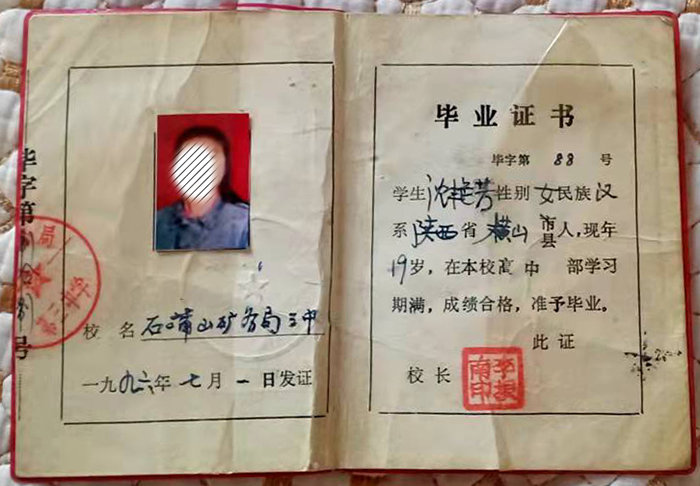 毕字第
号
校 名 石嘴山矿务局三中
一九九六年 七月 一日发证
毕业证书
毕字第 88 号
学生沈艳芳性别女民族汉
系陕西省横山市县人,现年
19岁,在本校高中 部学习
期满,成绩合格,准予毕业。
此证
校长